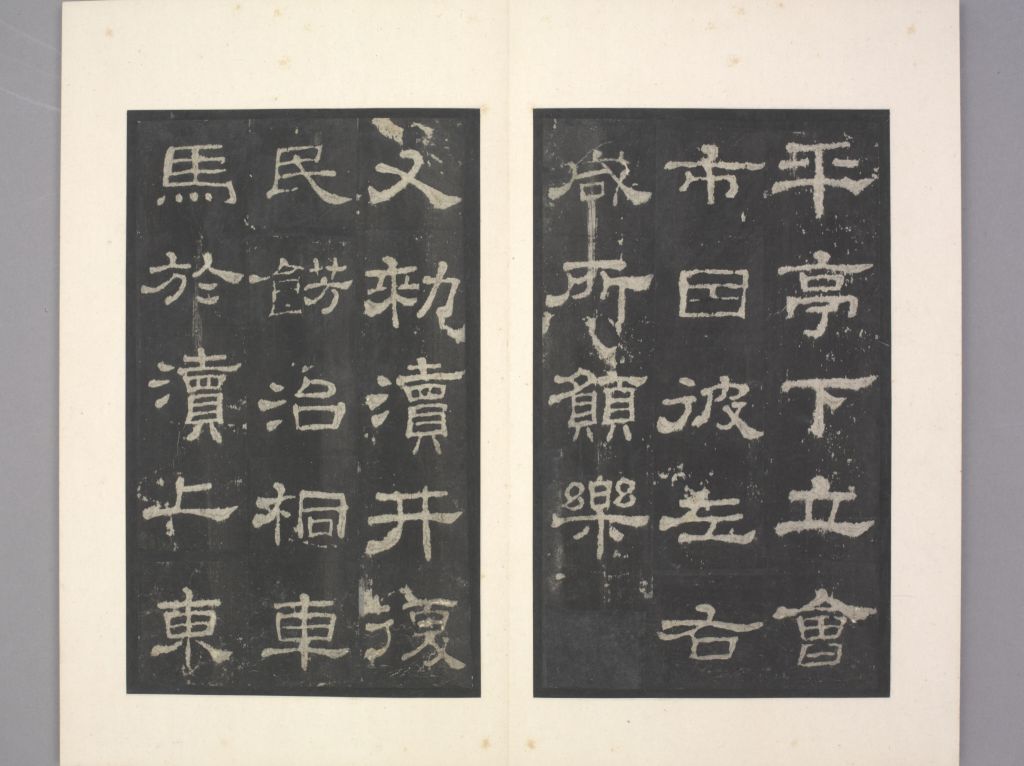 平亭下立會
市因彼左右
咸所願樂
又勑瀆井復
民餝治桐車
馬於瀆上東